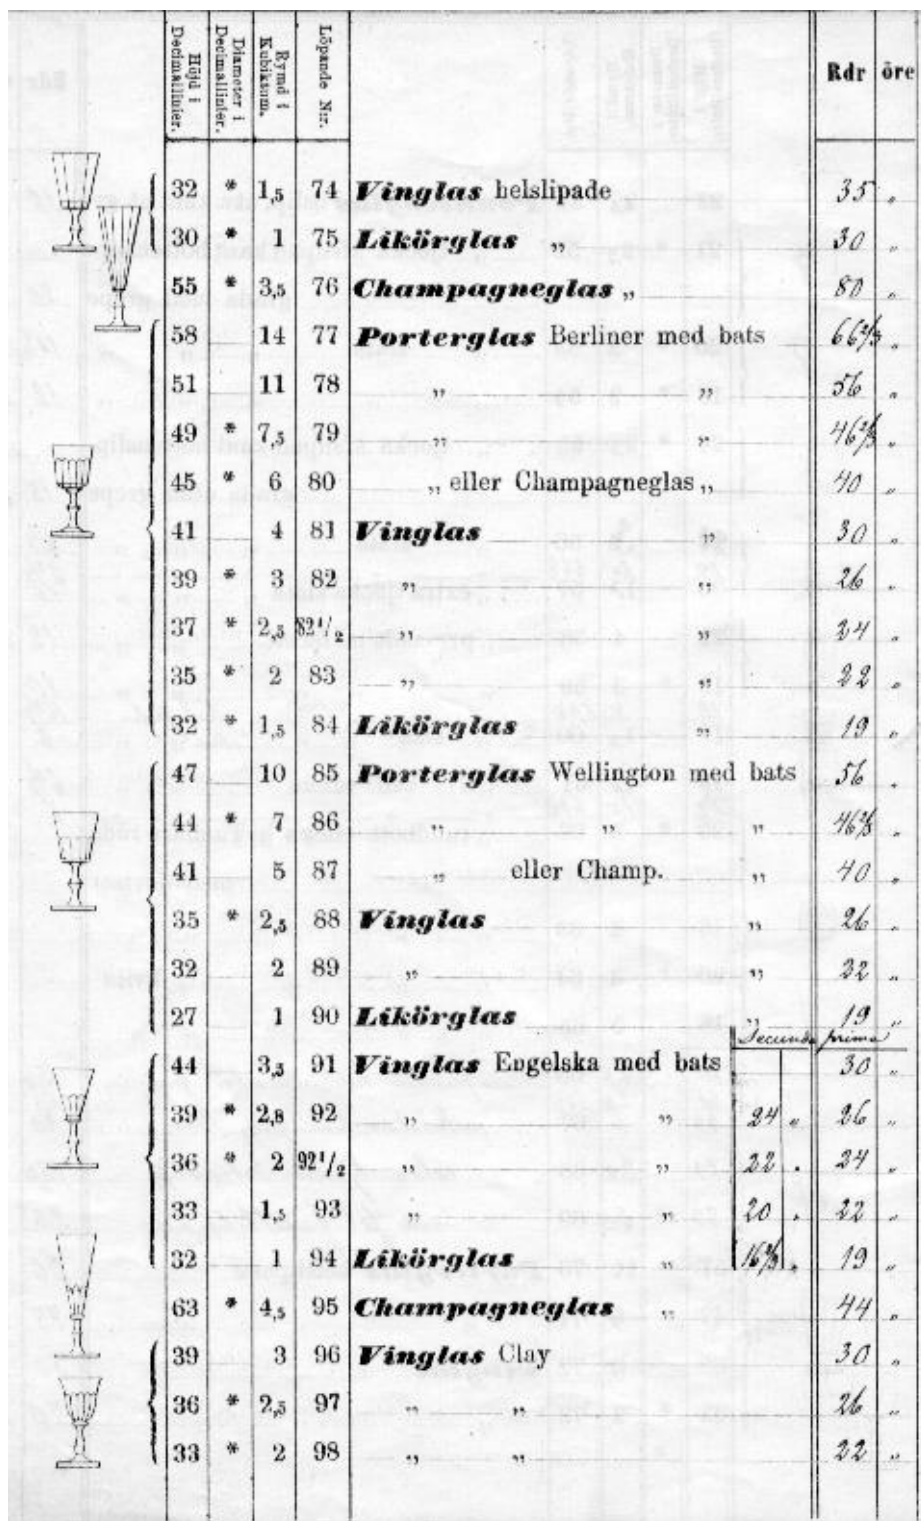 Höjd i Decimallinier. Diameter i Decimallinier. Rymd i Kubiktum. Löpande N:r. Rdr öre
32 * 1,5 74 Vinglas helslipade 35 „
30 * 1 75 Likörglas „ 30 „
55 * 3,5 76 Champagneglas „ 80 „
58 14 77 Porterglas Berliner med bats 66 2/3 „
51 11 78 „ „ 56 „
49 * 7,5 79 „ „ 46 2/3 „
45 * 6 80 „ eller Champagneglas „ 40 „
41 4 81 Vinglas „ 30 „
39 * 3 82 „ „ 26 „
37 * 2,5 82 1/2 „ „ 24 „
35 * 2 83 „ „ 22 „
32 * 1,5 84 Likörglas „ 19 „
47 10 85 Porterglas Wellington med bats 56 „
44 * 7 86 „ „ „ 46 2/3 „
41 5 87 „ eller Champ. „ 40 „
35 * 2,5 88 Vinglas „ 26 „
32 2 89 „ „ 22 „
27 1 90 Likörglas „ 19 „
Secunda prima
44 3,5 91 Vinglas Engelska med bats 30 „
39 * 2,8 92 „ „ 24 „ 26 „
36 * 2 92 1/2 „ „ 22 „ 24 „
33 1,5 93 „ „ 20 „ 22 „
32 1 94 Likörglas „ 16 2/3 „ 19 „
63 * 4,5 95 Champagneglas „ 44 „
39 3 96 Vinglas Clay 30 „
36 * 2,5 97 „ „ 26 „
33 * 2 98 „ „ 22 „